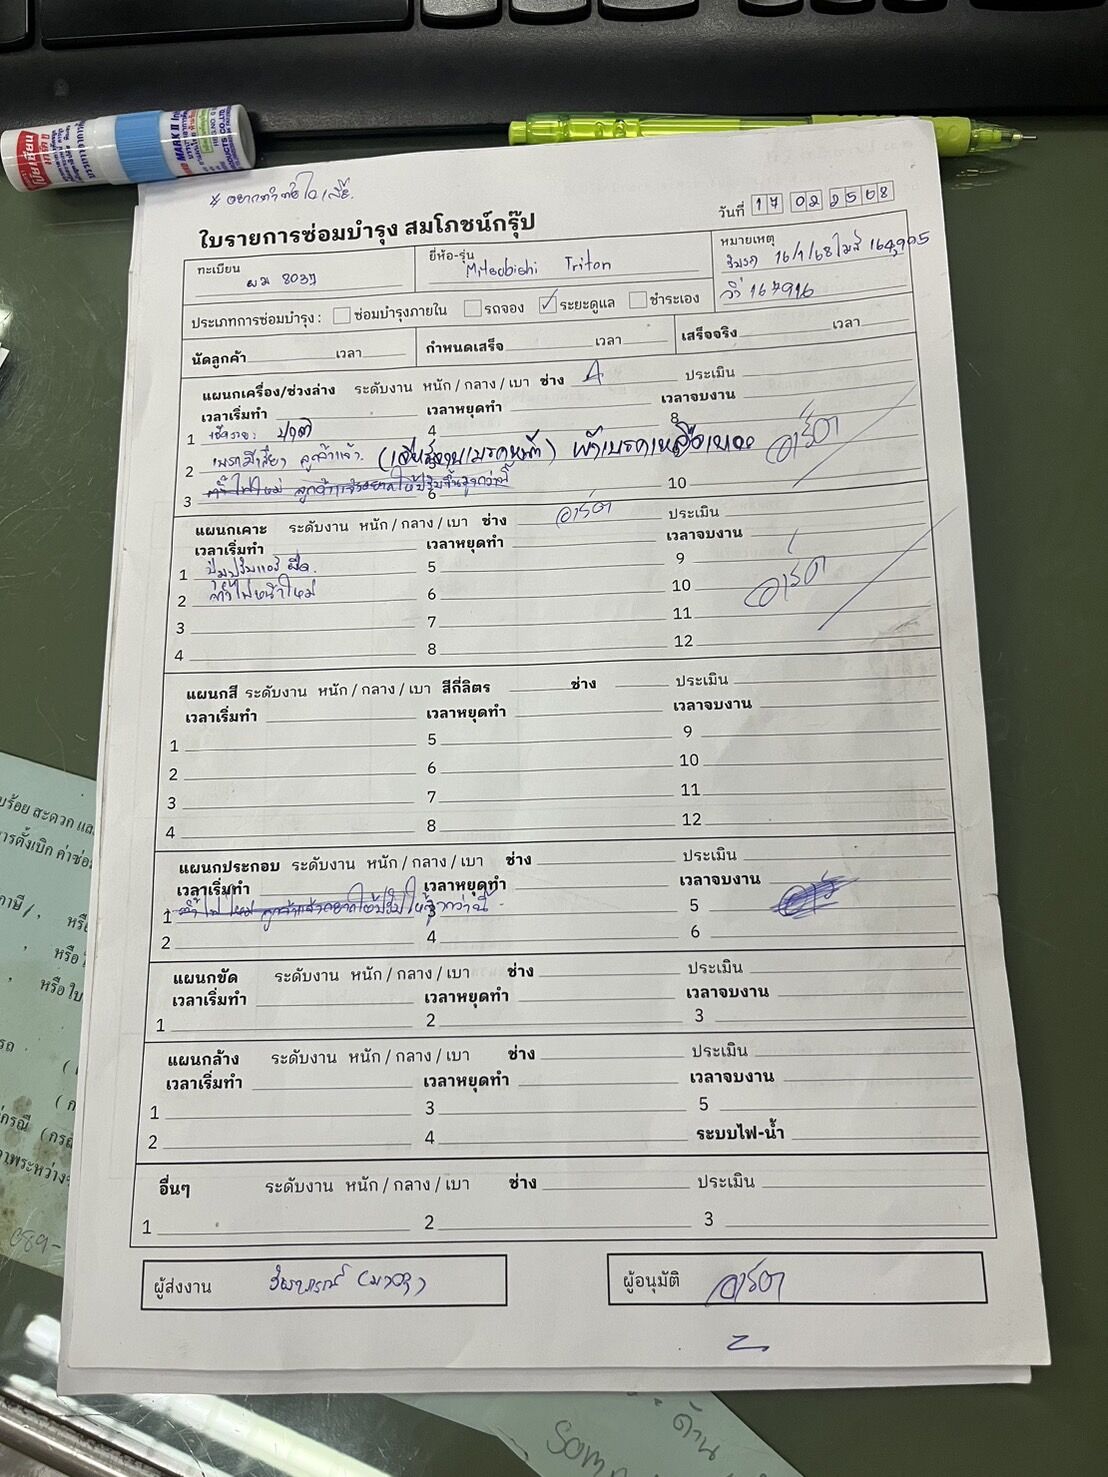 ใบรายการซ่อมบำรุง สมโภชน์กรุ๊ป
วันที่ 17 02 2568
ทะเบียน
ยี่ห้อ-รุ่น Mitsubishi Triton
หมายเหตุ
16/1/68 ไมล์ 164,995
วิ่ง 167916
ประเภทการซ่อมบำรุง : ซ่อมบำรุงภายใน รถจอง ✓ ระยะดูแล ชำระเอง
นัดลูกค้า เวลา กำหนดเสร็จ เวลา เสร็จจริง เวลา
แผนกเครื่อง/ช่วงล่าง ระดับงาน หนัก / กลาง / เบา ช่าง A ประเมิน
เวลาเริ่มทำ เวลาหยุดทำ เวลาจบงาน
1 เช็คระยะ ปกติ 4 8
2 เบรกมีเสียง ลูกค้าแจ้ง (เจียร์จานเบรคหน้า) ผ้าเบรคเหลือเยอะ อาร์ต
3 ตั้งไฟใหม่ ลูกค้าแจ้งอยากให้ปรับขึ้นสูงกว่านี้ 6 10
แผนกเคาะ ระดับงาน หนัก / กลาง / เบา ช่าง อาร์ต ประเมิน
เวลาเริ่มทำ เวลาหยุดทำ เวลาจบงาน
1 ปุ่มปรับแอร์ ฝืด. 5 9
2 ตั้งไฟหน้าใหม่ 6 10 อาร์ต
3 7 11
4 8 12
แผนกสี ระดับงาน หนัก / กลาง / เบา สีกี่ลิตร ช่าง ประเมิน
เวลาเริ่มทำ เวลาหยุดทำ เวลาจบงาน
1 5 9
2 6 10
3 7 11
4 8 12
แผนกประกอบ ระดับงาน หนัก / กลาง / เบา ช่าง ประเมิน
เวลาเริ่มทำ เวลาหยุดทำ เวลาจบงาน
1 ตั้งไฟใหม่ ลูกค้าแจ้งอยากให้ปรับให้สูงกว่านี้ 3 5
2 4 6
แผนกขัด ระดับงาน หนัก / กลาง / เบา ช่าง ประเมิน
เวลาเริ่มทำ เวลาหยุดทำ เวลาจบงาน
1 2 3
แผนกล้าง ระดับงาน หนัก / กลาง / เบา ช่าง ประเมิน
เวลาเริ่มทำ เวลาหยุดทำ เวลาจบงาน
1 3 5
2 4 ระบบไฟ-น้ำ
อื่นๆ ระดับงาน หนัก / กลาง / เบา ช่าง ประเมิน
1 2 3
ผู้ส่งงาน
ผู้อนุมัติ อาร์ต